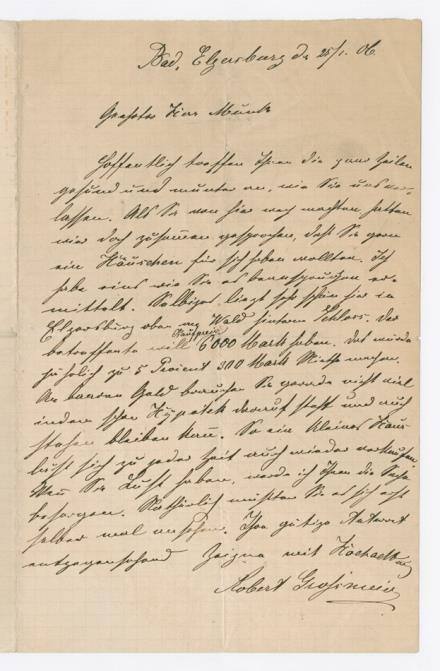 Bad, Elgersburg d. 25/1. 06.
Geehrter Herr Munk
Hoffentlich treffen Ihnen die paar Zeilen
gesund und munter an, wie Sie uns ver-
lassen. Als Sie von hier weg machten, hatten
wir doch zusammen gesprochen, daß Sie gern
ein Häuschen für sich haben wollten. Ich
habe eins wie Sie es beanspruchen er-
mittelt. Selbiges liegt sehr schön hier in
Elgersburg oben am Wald hinterm Schloss. Der
Kaufpreis
betreffende will 6000 Mark haben. Das würde
jährlich zu 5 Prozent 300 Mark Miethe machen.
An baaren Geld brauchen Sie gerade nicht viel
indem schon Hypotek darauf steht und auch
stehen bleiben kann. So ein kleines Häus-
läßt sich zu jeder Zeit auch wieder verkaufen.
Wenn Sie Lust haben, werde ich Ihnen die Sache
besorgen. Natürlich müßten Sie es sich erst
selber mal ansehen. Ihre gütige Antwort
entgegensehend zeigne mit Hochachtung
Robert